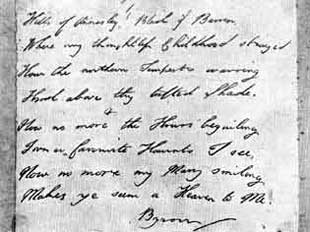 Hills of Annesley! Bleak & Barren
Where my thoughtless Childhood strayed
How the northern Tempests warring
Howl above thy tufted Shade.
Now no more the Hours beguiling
Former favourite Haunts I see,
Now no more my Mary smiling
Makes ye seem a Heaven to Me.
Byron